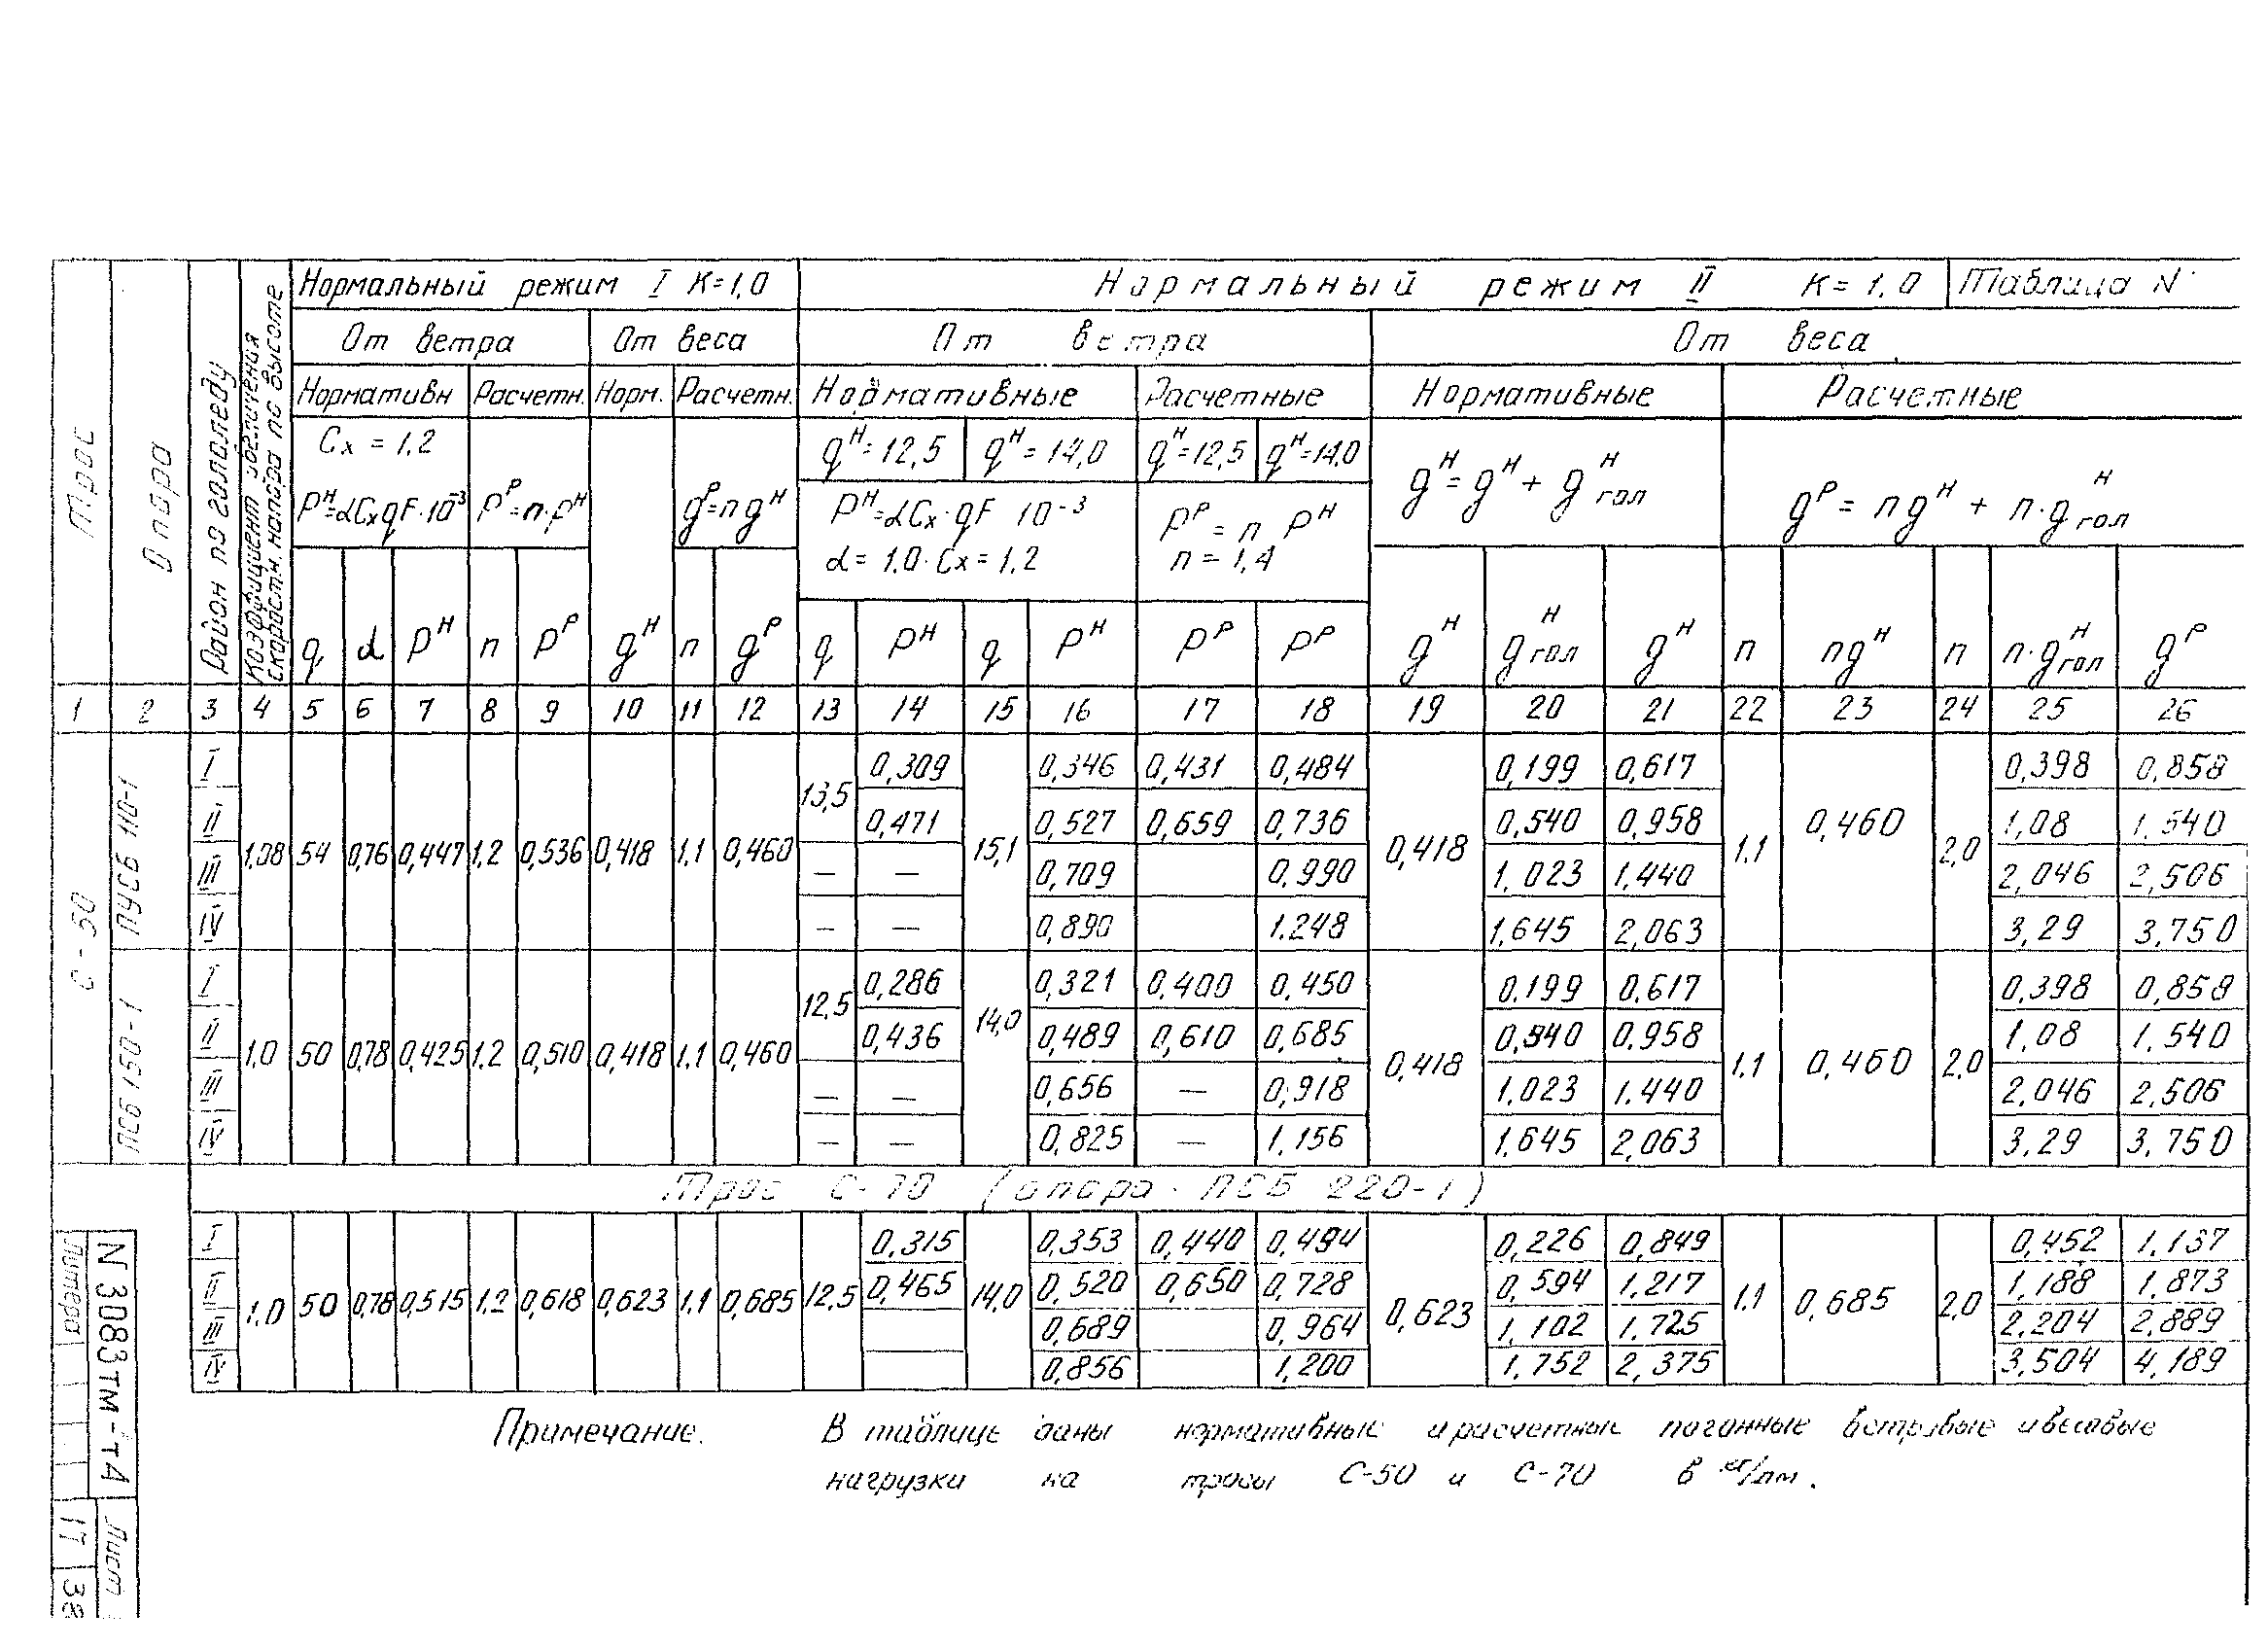 Нормальный режим I К=1,0
Нормальный режим II К=1,0
Таблица N
Трос
Опора
Район по гололеду
Коэффициент увеличения
скоростн. напора по высоте
От ветра
От веса
От ветра
От веса
Нормативн
Расчетн.
Норм.
Расчетн.
Нормативные
Расчетные
Нормативные
Расчетные
Cx = 1,2
qᴴ=12,5 qᴴ=14,0 qᴴ=12,5 qᴴ=14,0
Pᴴ=αCxqF·10⁻³ Pᴾ=n·Pᴴ gᴾ=ngᴴ
Pᴴ=αCx·qF 10⁻³
α=1,0·Cx=1,2
Pᴾ=n Pᴴ
n=1,4
gᴴ=gᴴ+gᴴгол
gᴾ=ngᴴ+n·gᴴгол
q α Pᴴ n Pᴾ gᴴ n gᴾ q Pᴴ q Pᴴ Pᴾ Pᴾ gᴴ gᴴгол gᴴ n ngᴴ n n·gᴴгол gᴾ
1 2 3 4 5 6 7 8 9 10 11 12 13 14 15 16 17 18 19 20 21 22 23 24 25 26
С-50
ПУСБ 110-1
1,08 54 0,76 0,447 1,2 0,536 0,418 1,1 0,460 13,5 15,1 0,418 1.1 0,460 2,0
I 0,309 0,346 0,431 0,484 0,199 0,617 0,398 0,858
II 0,471 0,527 0,659 0,736 0,540 0,958 1,08 1.540
III — — 0,709 0.990 1.023 1,440 2,046 2,506
IV — — 0,890 1.248 1,645 2,063 3,29 3,750
ПСБ 150-1
1,0 50 0,78 0,425 1,2 0,510 0,418 1,1 0,460 12,5 14,0 0,418 1.1 0,460 2,0
I 0,286 0,321 0,400 0,450 0.199 0.617 0.398 0,858
II 0,436 0,489 0,610 0,685 0,540 0.958 1,08 1.540
III — — 0,656 — 0,918 1.023 1.440 2,046 2,506
IV — — 0,825 — 1,156 1,645 2,063 3,29 3,750
Трос С-70 (опора ПСБ 220-1)
1,0 50 0,78 0,515 1,2 0,618 0,623 1,1 0,685 12,5 14,0 0,623 1.1 0,685 2,0
I 0,315 0,353 0,440 0,494 0,226 0,849 0,452 1.137
II 0,465 0,520 0,650 0,728 0,594 1.217 1,188 1,873
III 0,689 0,964 1,102 1.725 2,204 2,889
IV 0,856 1,200 1,752 2,375 3,504 4,189
Примечание. В таблице даны нормативные и расчетные погонные ветровые и весовые
нагрузки на тросы С-50 и С-70 в кг/пм.
N 3083тм-т4
Литера
Лист
17
38